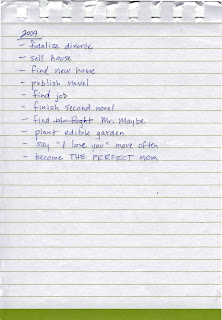 2009
- finalize divorce
- sell house
- find new home
- publish novel
- find job
- finish second novel
- find Mr. Right Mr. Maybe
- plant edible garden
- say "I love you" more often
- become THE PERFECT MOM